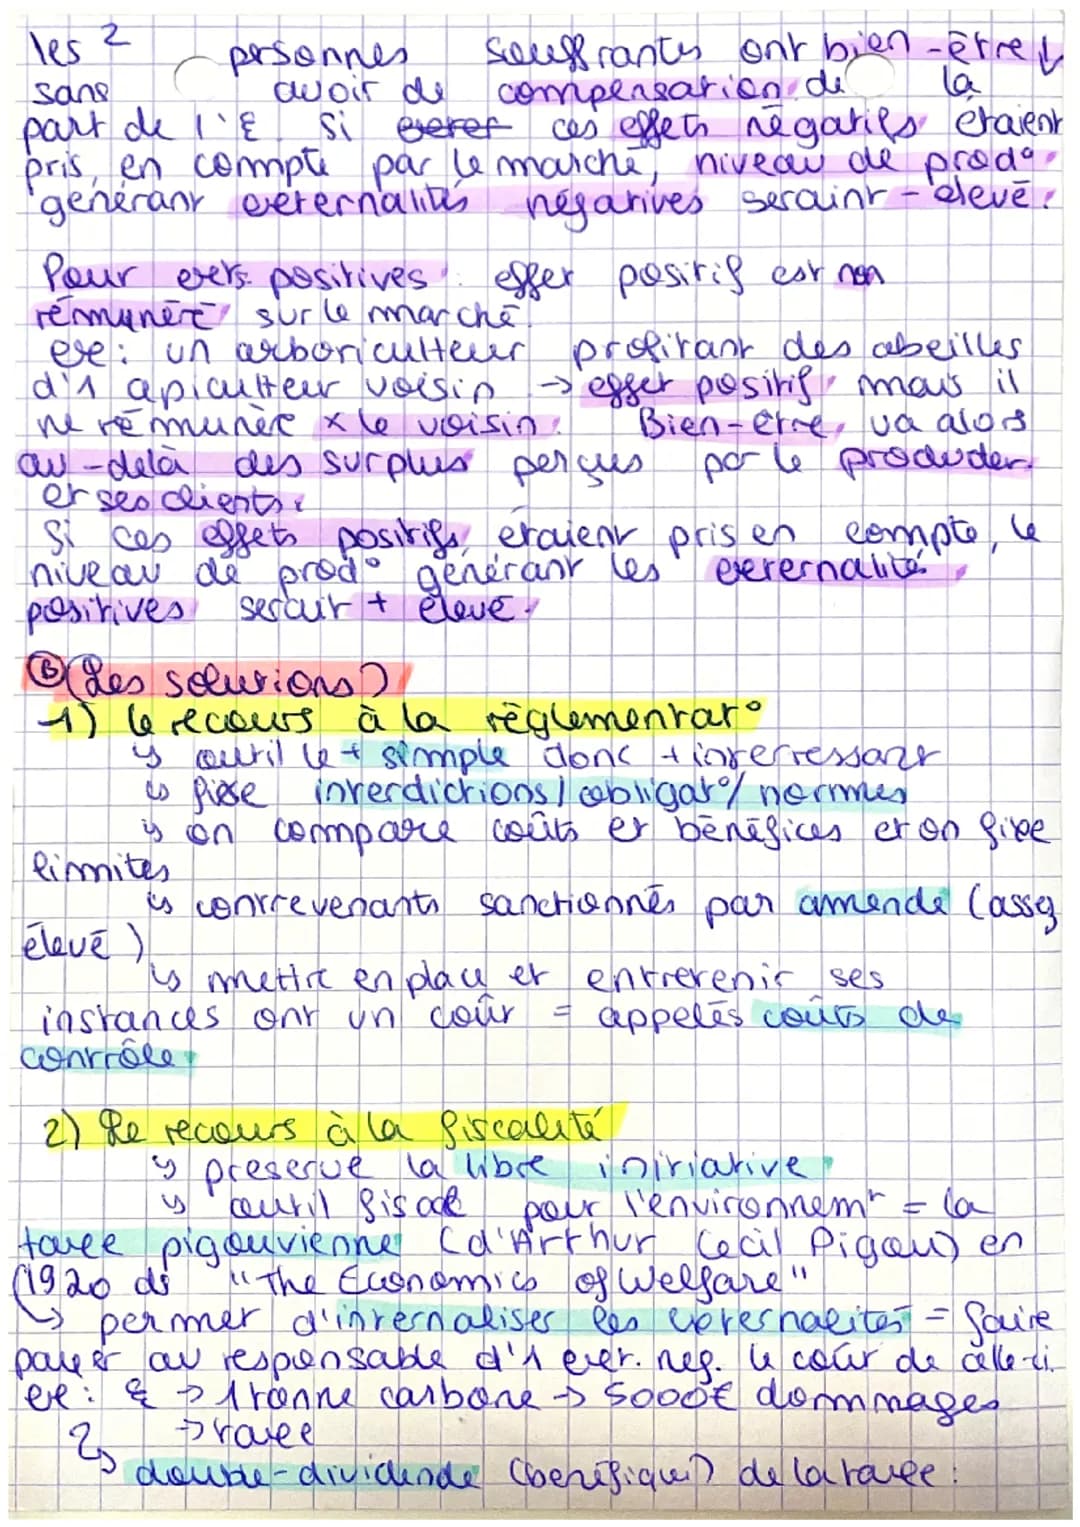 les 2 personnes souffrantes ont bien-être ↓
sans avoir de compensation de la
part de l'E Si ces effets négatifs étaient
pris en compte par le marché, niveau de prod°
générant externalités négatives seraint - élevé.
Pour exers. positives : effet positif est non
rémunéré sur le marché.
exe : un arboriculteur profitant des abeilles
d'1 apiculteur voisin → effet positif, mais il
ne rémunère x le voisin. Bien-être, va alors
au-delà des surplus perçus par le producter.
et ses clients.
Si ces effets positifs, étaient pris en compte, le
niveau de prod° générant les externalité
positives serait + élevé.
B (Les solutions)
1) le recours à la réglementat°
↳ outil le + simple donc + interressant
↳ fixe interdictions / obligat° / normes
↳ on compare coûts et bénéfices et on fixe
limites
↳ contrevenants sanctionnés par amende (assez
élevé)
↳ mettre en place et entretenir ses
instances ont un coût = appelés coûts de
contrôle
2) Le recours à la fiscalité
↳ preserve la libre initiative
↳ outil fiscal pour l'environnemt = la
taxe pigouvienne (d'Arthur Cecil Pigou) en
(1920 ds "The Economics of Welfare"
↳ permet d'internaliser les externalités = faire
payer au responsable d'1 exter. neg. le coût de celle-ci
exe : E → 1 tonne carbone → 5000€ dommages
→ taxe
↳ double-dividende (benéfique) de la taxe :